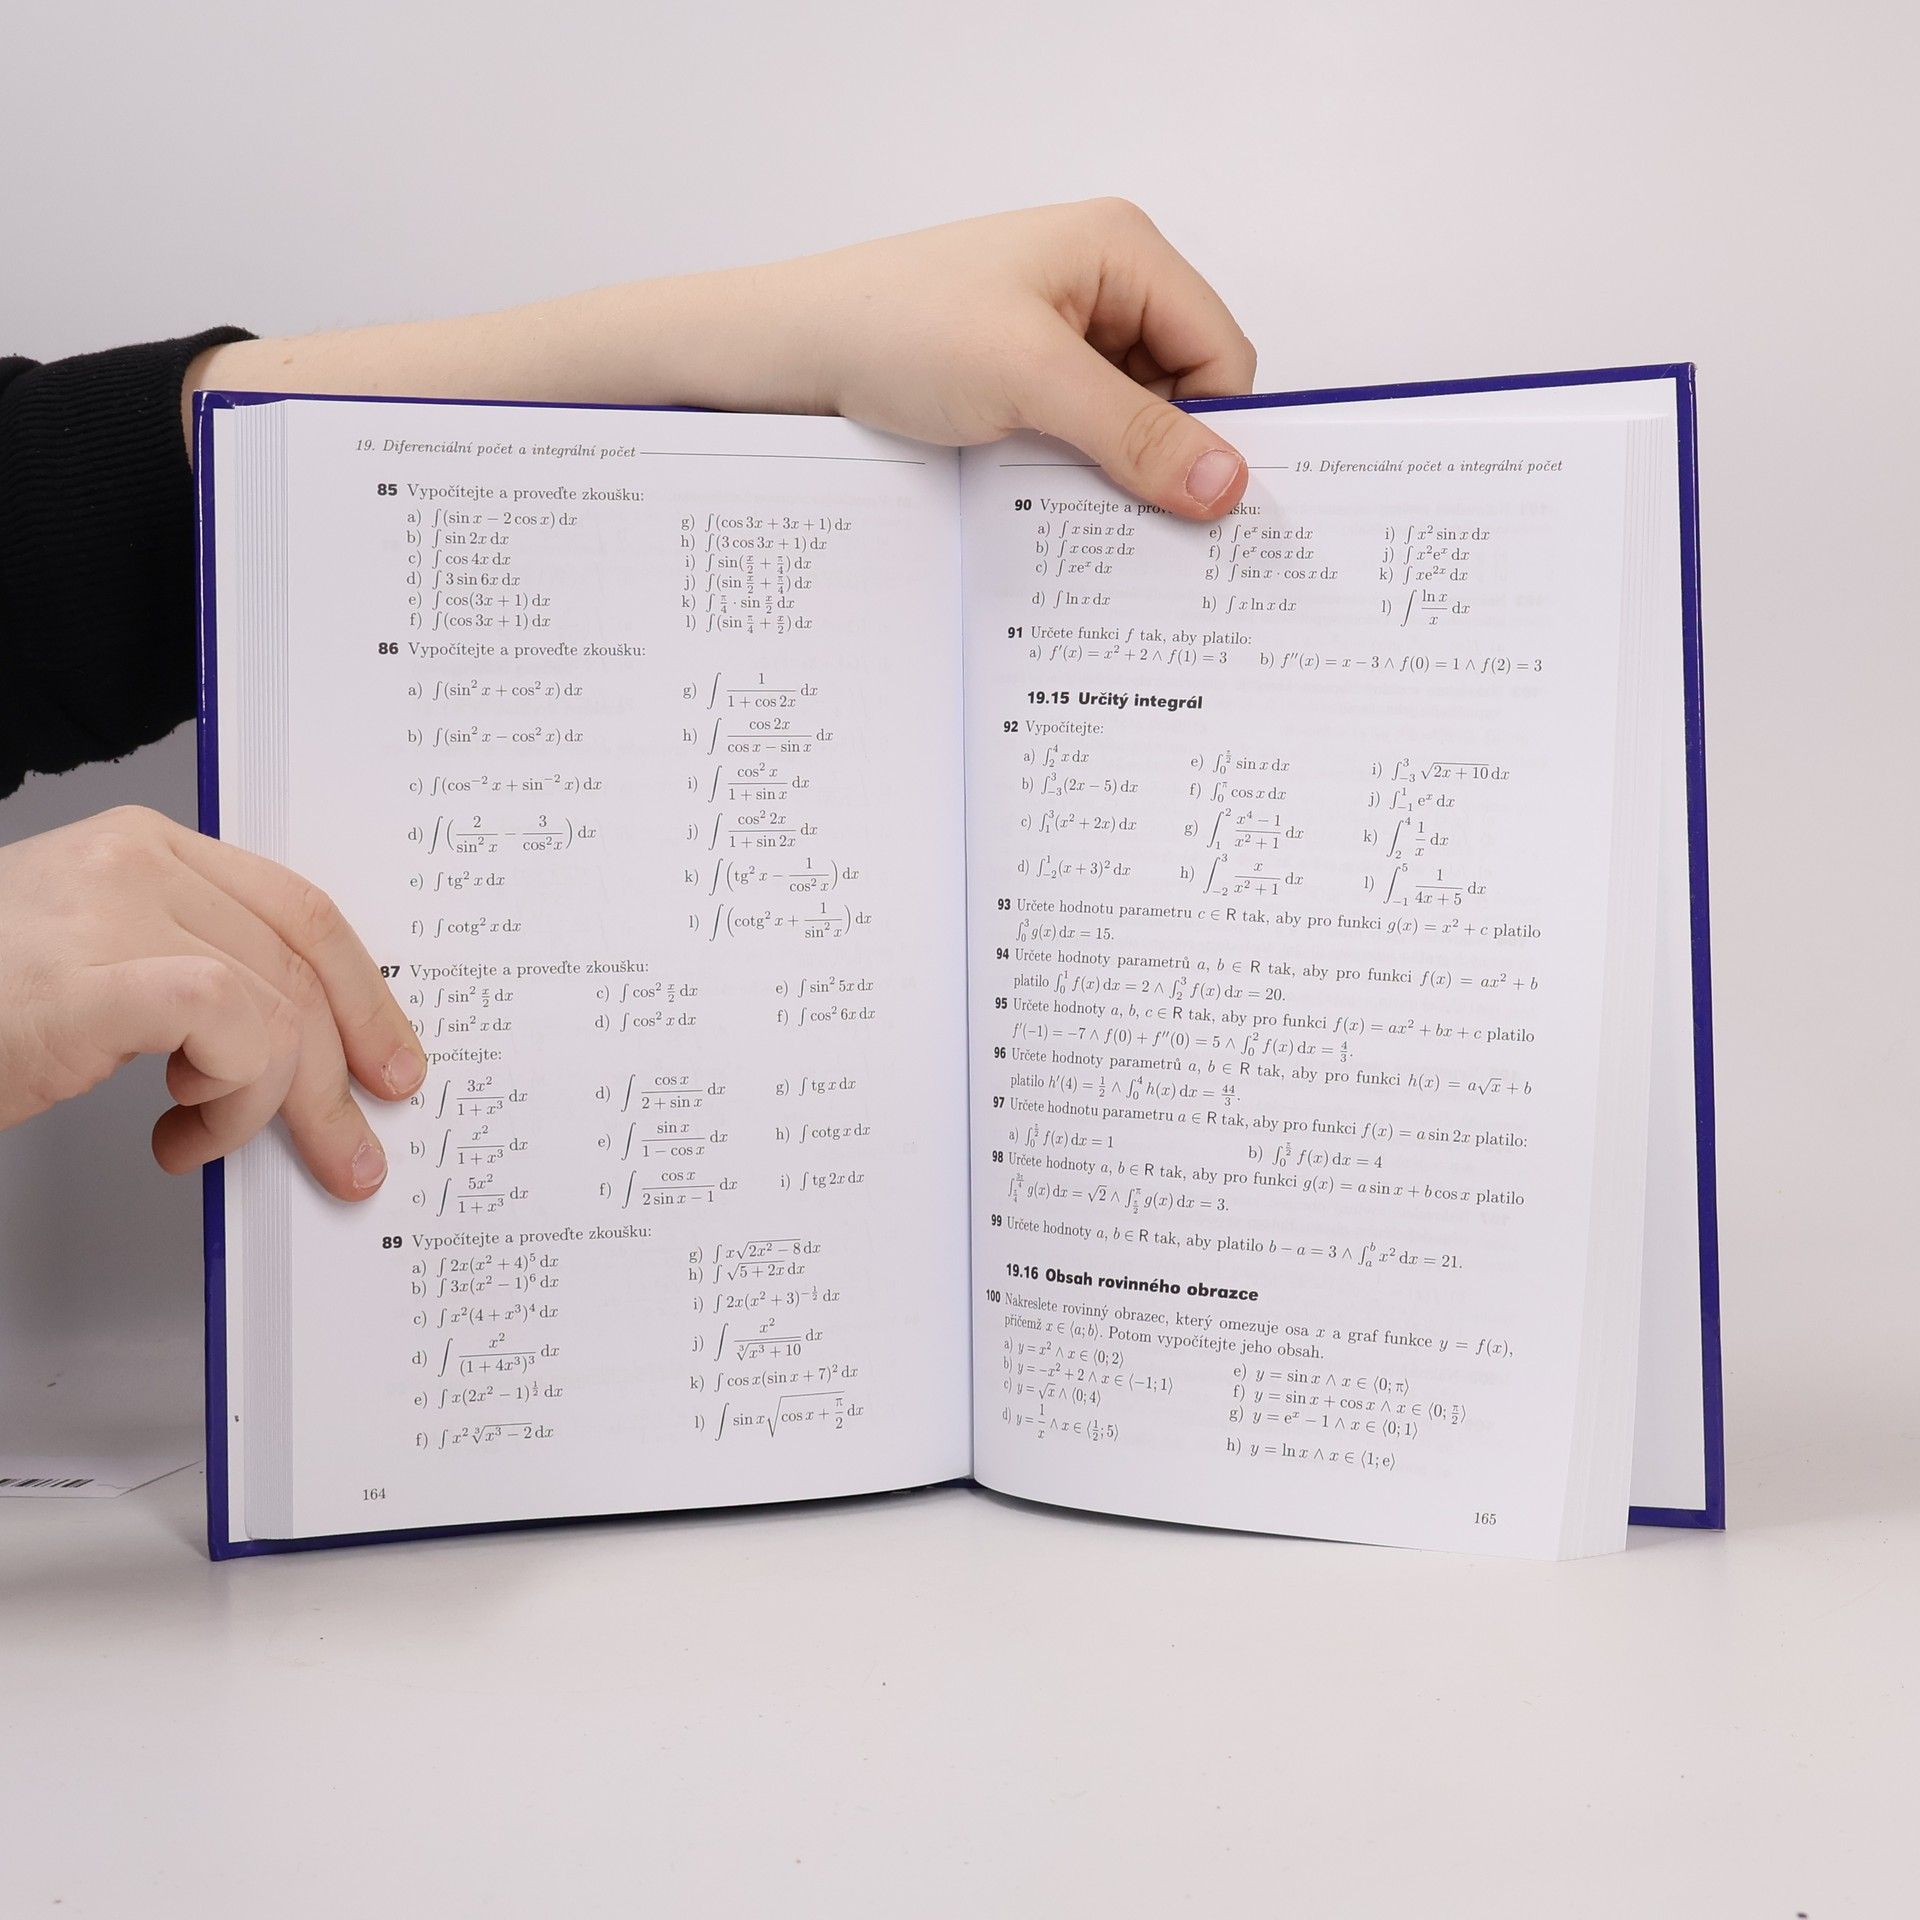 19. Diferenciální počet a integrální počet
85 Vypočítejte a proveďte zkoušku:
a) ∫(sin x − 2 cos x) dx
b) ∫ sin 2x dx
c) ∫ cos 4x dx
d) ∫ 3 sin 6x dx
e) ∫ cos(3x + 1) dx
f) ∫(cos 3x + 1) dx
g) ∫(cos 3x + 3x + 1) dx
h) ∫(3 cos 3x + 1) dx
i) ∫ sin(x/2 + π/4) dx
j) ∫(sin x/2 + π/4) dx
k) ∫ π/4 · sin x/2 dx
l) ∫(sin π/4 + x/2) dx
86 Vypočítejte a proveďte zkoušku:
a) ∫(sin² x + cos² x) dx
b) ∫(sin² x − cos² x) dx
c) ∫(cos⁻² x + sin⁻² x) dx
d) ∫(2/sin² x − 3/cos² x) dx
e) ∫ tg² x dx
f) ∫ cotg² x dx
g) ∫ 1/(1 + cos 2x) dx
h) ∫ cos 2x/(cos x − sin x) dx
i) ∫ cos² x/(1 + sin x) dx
j) ∫ cos² 2x/(1 + sin 2x) dx
k) ∫(tg² x − 1/cos² x) dx
l) ∫(cotg² x + 1/sin² x) dx
87 Vypočítejte a proveďte zkoušku:
a) ∫ sin² x/2 dx c) ∫ cos² x/2 dx e) ∫ sin² 5x dx
b) ∫ sin² x dx d) ∫ cos² x dx f) ∫ cos² 6x dx
ypočítejte:
a) ∫ 3x²/(1 + x³) dx d) ∫ cos x/(2 + sin x) dx g) ∫ tg x dx
b) ∫ x²/(1 + x³) dx e) ∫ sin x/(1 − cos x) dx h) ∫ cotg x dx
c) ∫ 5x²/(1 + x³) dx f) ∫ cos x/(2 sin x − 1) dx i) ∫ tg 2x dx
89 Vypočítejte a proveďte zkoušku:
a) ∫ 2x(x² + 4)⁵ dx
b) ∫ 3x(x² − 1)⁶ dx
c) ∫ x²(4 + x³)⁴ dx
d) ∫ x²/(1 + 4x³)³ dx
e) ∫ x(2x² − 1)^(1/2) dx
f) ∫ x² ∛(x³ − 2) dx
g) ∫ x√(2x² − 8) dx
h) ∫ √(5 + 2x) dx
i) ∫ 2x(x² + 3)^(−1/2) dx
j) ∫ x²/∛(x³ + 10) dx
k) ∫ cos x(sin x + 7)² dx
l) ∫ sin x√(cos x + π/2) dx
164
19. Diferenciální počet a integrální počet
90 Vypočítejte a prov šku:
a) ∫ x sin x dx e) ∫ eˣ sin x dx i) ∫ x² sin x dx
b) ∫ x cos x dx f) ∫ eˣ cos x dx j) ∫ x²eˣ dx
c) ∫ xeˣ dx g) ∫ sin x · cos x dx k) ∫ xe²ˣ dx
d) ∫ ln x dx h) ∫ x ln x dx l) ∫ ln x/x dx
91 Určete funkci f tak, aby platilo:
a) f′(x) = x² + 2 ∧ f(1) = 3 b) f″(x) = x − 3 ∧ f(0) = 1 ∧ f(2) = 3
19.15 Určitý integrál
92 Vypočítejte:
a) ∫₂⁴ x dx e) ∫₀^(π/2) sin x dx i) ∫₋₃³ √(2x + 10) dx
b) ∫₋₃³(2x − 5) dx f) ∫₀^π cos x dx j) ∫₋₁¹ eˣ dx
c) ∫₁³(x² + 2x) dx g) ∫₁² (x⁴ − 1)/(x² + 1) dx k) ∫₂⁴ 1/x dx
d) ∫₋₂¹(x + 3)² dx h) ∫₋₂³ x/(x² + 1) dx l) ∫₋₁⁵ 1/(4x + 5) dx
93 Určete hodnotu parametru c ∈ R tak, aby pro funkci g(x) = x² + c platilo
∫₀³ g(x) dx = 15.
94 Určete hodnoty parametrů a, b ∈ R tak, aby pro funkci f(x) = ax² + b
platilo ∫₀¹ f(x) dx = 2 ∧ ∫₂³ f(x) dx = 20.
95 Určete hodnoty a, b, c ∈ R tak, aby pro funkci f(x) = ax² + bx + c platilo
f′(−1) = −7 ∧ f(0) + f″(0) = 5 ∧ ∫₀² f(x) dx = 4/3.
96 Určete hodnoty parametrů a, b ∈ R tak, aby pro funkci h(x) = a√x + b
platilo h′(4) = 1/2 ∧ ∫₀⁴ h(x) dx = 44/3.
97 Určete hodnotu parametru a ∈ R tak, aby pro funkci f(x) = a sin 2x platilo:
a) ∫₀^(π/2) f(x) dx = 1 b) ∫₀^(π/2) f(x) dx = 4
98 Určete hodnoty a, b ∈ R tak, aby pro funkci g(x) = a sin x + b cos x platilo
∫_(π/4)^(3π/4) g(x) dx = √2 ∧ ∫_(π/2)^π g(x) dx = 3.
99 Určete hodnoty a, b ∈ R tak, aby platilo b − a = 3 ∧ ∫ₐᵇ x² dx = 21.
19.16 Obsah rovinného obrazce
100 Nakreslete rovinný obrazec, který omezuje osa x a graf funkce y = f(x),
přičemž x ∈ ⟨a; b⟩. Potom vypočítejte jeho obsah.
a) y = x² ∧ x ∈ ⟨0; 2⟩
b) y = −x² + 2 ∧ x ∈ ⟨−1; 1⟩
c) y = √x ∧ ⟨0; 4⟩
d) y = 1/x ∧ x ∈ ⟨1/2; 5⟩
e) y = sin x ∧ x ∈ ⟨0; π⟩
f) y = sin x + cos x ∧ x ∈ ⟨0; π/2⟩
g) y = eˣ − 1 ∧ x ∈ ⟨0; 1⟩
h) y = ln x ∧ x ∈ ⟨1; e⟩
165